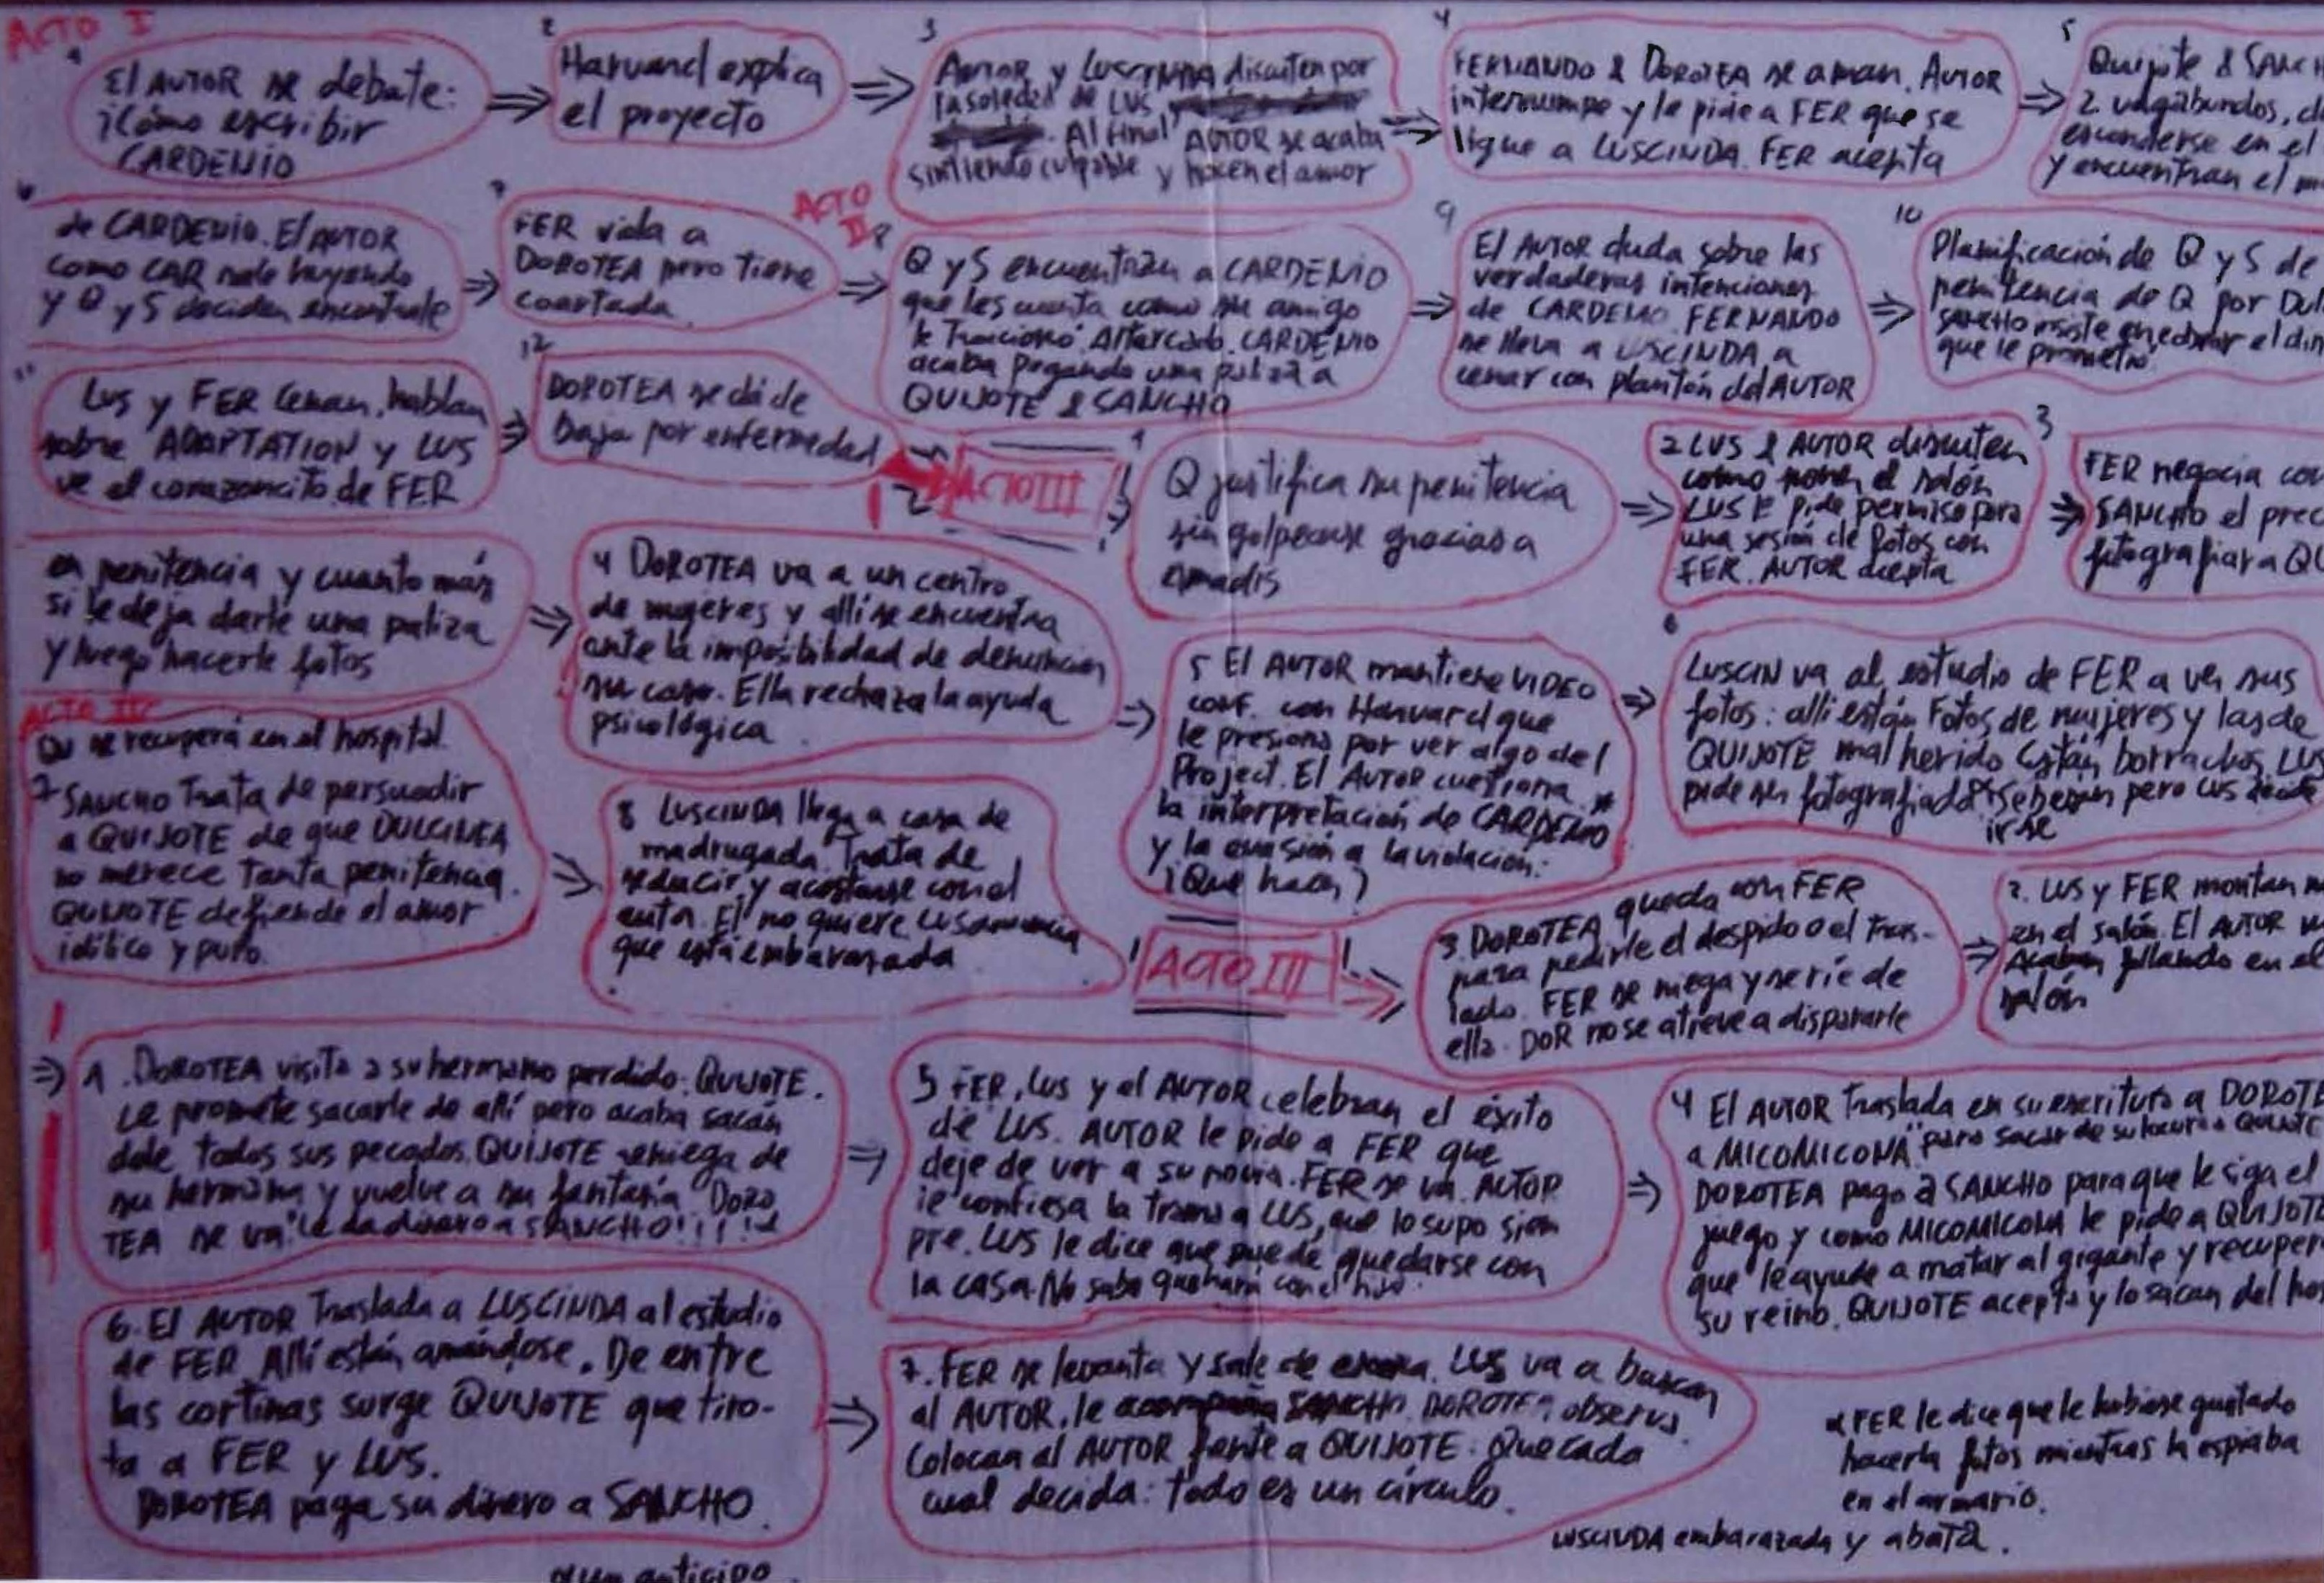 ACTO I
1
El AUTOR se debate:
¿Cómo escribir
CARDENIO
2
Harvard explica
el proyecto
3
AUTOR y LUSCINDA discuten por
la soledad de LUS
Al final AUTOR se acaba
sintiendo culpable y hacen el amor
4
FERNANDO & DOROTEA se aman. AUTOR
interrumpe y le pide a FER que se
ligue a LUSCINDA. FER acepta
5
Quijote & SANCH
2 vagabundos, d
esconderse en el
y encuentran el m
6
de CARDENIO. El AUTOR
como CAR sale huyendo
y Q y S deciden encontrarle
7
FER viola a
DOROTEA pero tiene
coartada.
ACTO
II 8
Q y S encuentran a CARDENIO
que les cuenta como su amigo
le traicionó. Altercado. CARDENIO
acaba pegando una paliza a
QUIJOTE & SANCHO
9
El AUTOR duda sobre las
verdaderas intenciones
de CARDENIO. FERNANDO
se lleva a LUSCINDA a
cenar con plantón del AUTOR
10
Planificación de Q y S de
penitencia de Q por Dul
SANCHO insiste en cobrar el din
que le prometió
11
LUS y FER cenan, hablan
sobre ADAPTATION y LUS
ve el corazoncito de FER
12
DOROTEA se dá de
baja por enfermedad
ACTO III
1
Q justifica su penitencia
sin golpearse gracias a
Amadis
2 LUS & AUTOR discuten
como el salón
LUS le pide permiso para
una sesión de fotos con
FER. AUTOR acepta
3
FER negocia con
SANCHO el prec
fotografiar a QU
en penitencia y cuanto más
si le deja darle una paliza
y luego hacerle fotos
4 DOROTEA va a un centro
de mujeres y allí se encuentra
ante la imposibilidad de denunciar
su caso. Ella rechaza la ayuda
psicológica
5 El AUTOR mantiene VIDEO
conf. con Harvard que
le presiona por ver algo del
Project. El AUTOR cuestiona
la interpretación de CARDENIO
y la evasión a la violación:
¿Qué hacer?
6
LUSCIN va al estudio de FER a ver sus
fotos: allí están fotos de mujeres y las de
QUIJOTE mal herido. Están borrachos, LUS
pide ser fotografiada. Se besan pero LUS decide
irse
ACTO III
QU se recupera en el hospital.
7 SANCHO trata de persuadir
a QUIJOTE de que DULCINEA
no merece tanta penitencia.
QUIJOTE defiende el amor
idílico y puro.
8 LUSCINDA llega a casa de
madrugada. Trata de
seducir y acostarse con el
autor. El no quiere. LUS anuncia
que está embarazada
ACTO III
3 DOROTEA queda con FER
para pedirle el despido o el tras-
lado. FER se niega y se ríe de
ella. DOR no se atreve a dispararle
2. LUS y FER montan
en el salón. El AUTOR
Acaban follando en el
salón
1. DOROTEA visita a su hermano perdido: QUIJOTE.
Le promete sacarle de allí pero acaba sacán
dole todos sus pecados. QUIJOTE reniega de
su hermana y vuelve a su fantasía. DORO
TEA se va "le da dinero a SANCHO!!!!
5 FER, LUS y el AUTOR celebran el éxito
de LUS. AUTOR le pide a FER que
deje de ver a su novia. FER se va. AUTOR
le confiesa la trama a LUS, que lo supo siem
pre. LUS le dice que puede quedarse con
la casa. No sabe que hará con el hijo.
4 El AUTOR traslada en su escritura a DOROTE
a MICOMICONA" para sacar de su locura a QUIJOTE
DOROTEA pago a SANCHO para que le siga el
juego y como MICOMICONA le pide a QUIJOTE
que le ayude a matar al gigante y recuper
su reino. QUIJOTE acepta y lo sacan del hos
6. El AUTOR traslada a LUSCINDA al estudio
de FER. Allí están amándose. De entre
las cortinas surge QUIJOTE que tiro-
ta a FER y LUS.
DOROTEA paga su dinero a SANCHO.
7. FER se levanta y sale de escena. LUS va a buscar
al AUTOR, le acompaña SANCHO. DOROTEA observa.
Colocan al AUTOR frente a QUIJOTE. Que cada
cual decida: todo es un círculo.
FER le dice que le hubiese gustado
hacerla fotos mientras la espiaba
en el armario.
LUSCINDA embarazada y abata.
anticipo.